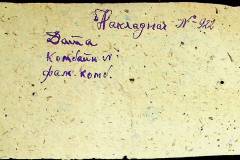 Накладная № 922
Дата
Комбайн №
фам. комб.